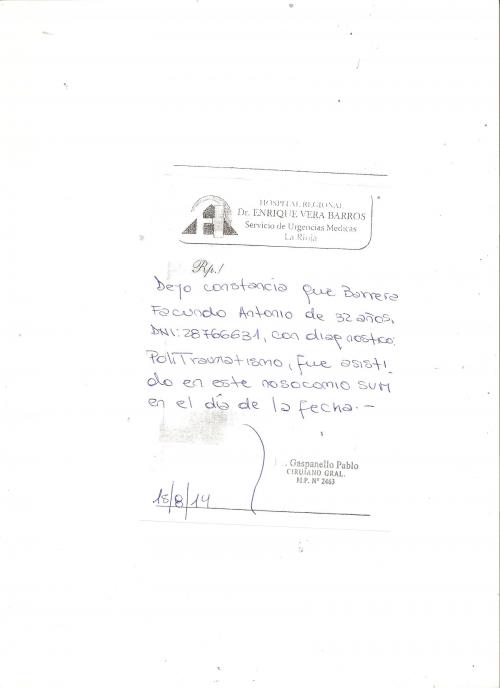 HOSPITAL REGIONAL
Dr. ENRIQUE VERA BARROS
Servicio de Urgencias Medicas
La Rioja
Rp./
Dejo constancia que Barrera
Facundo Antonio de 32 años,
DNI: 28766631, con diagnostico:
PoliTraumatismo, fue asisti_
do en este nosocomio SUM
en el día de la fecha.-
. Gaspanello Pablo
CIRUJANO GRAL.
M.P. Nº 2463
18/8/14